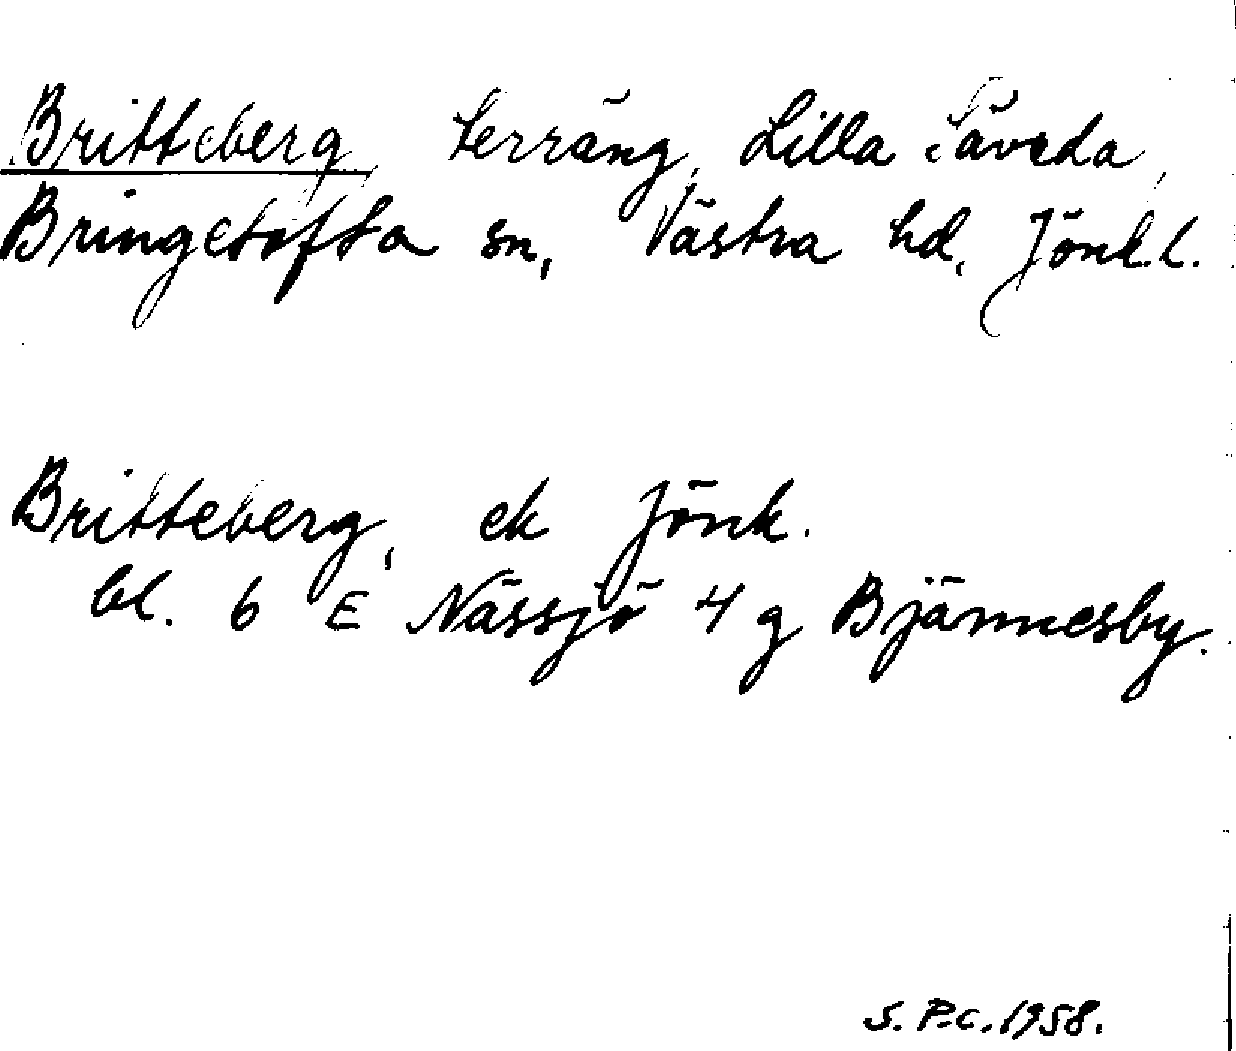 Britteberg, terräng, Lilla Säveda,
Bringetofta sn, Västra hd, Jönk.l.
Britteberg, ek Jönk.
bl. 6 E Nässjö 4 g Bjännesby.
S. P.c. 1958.